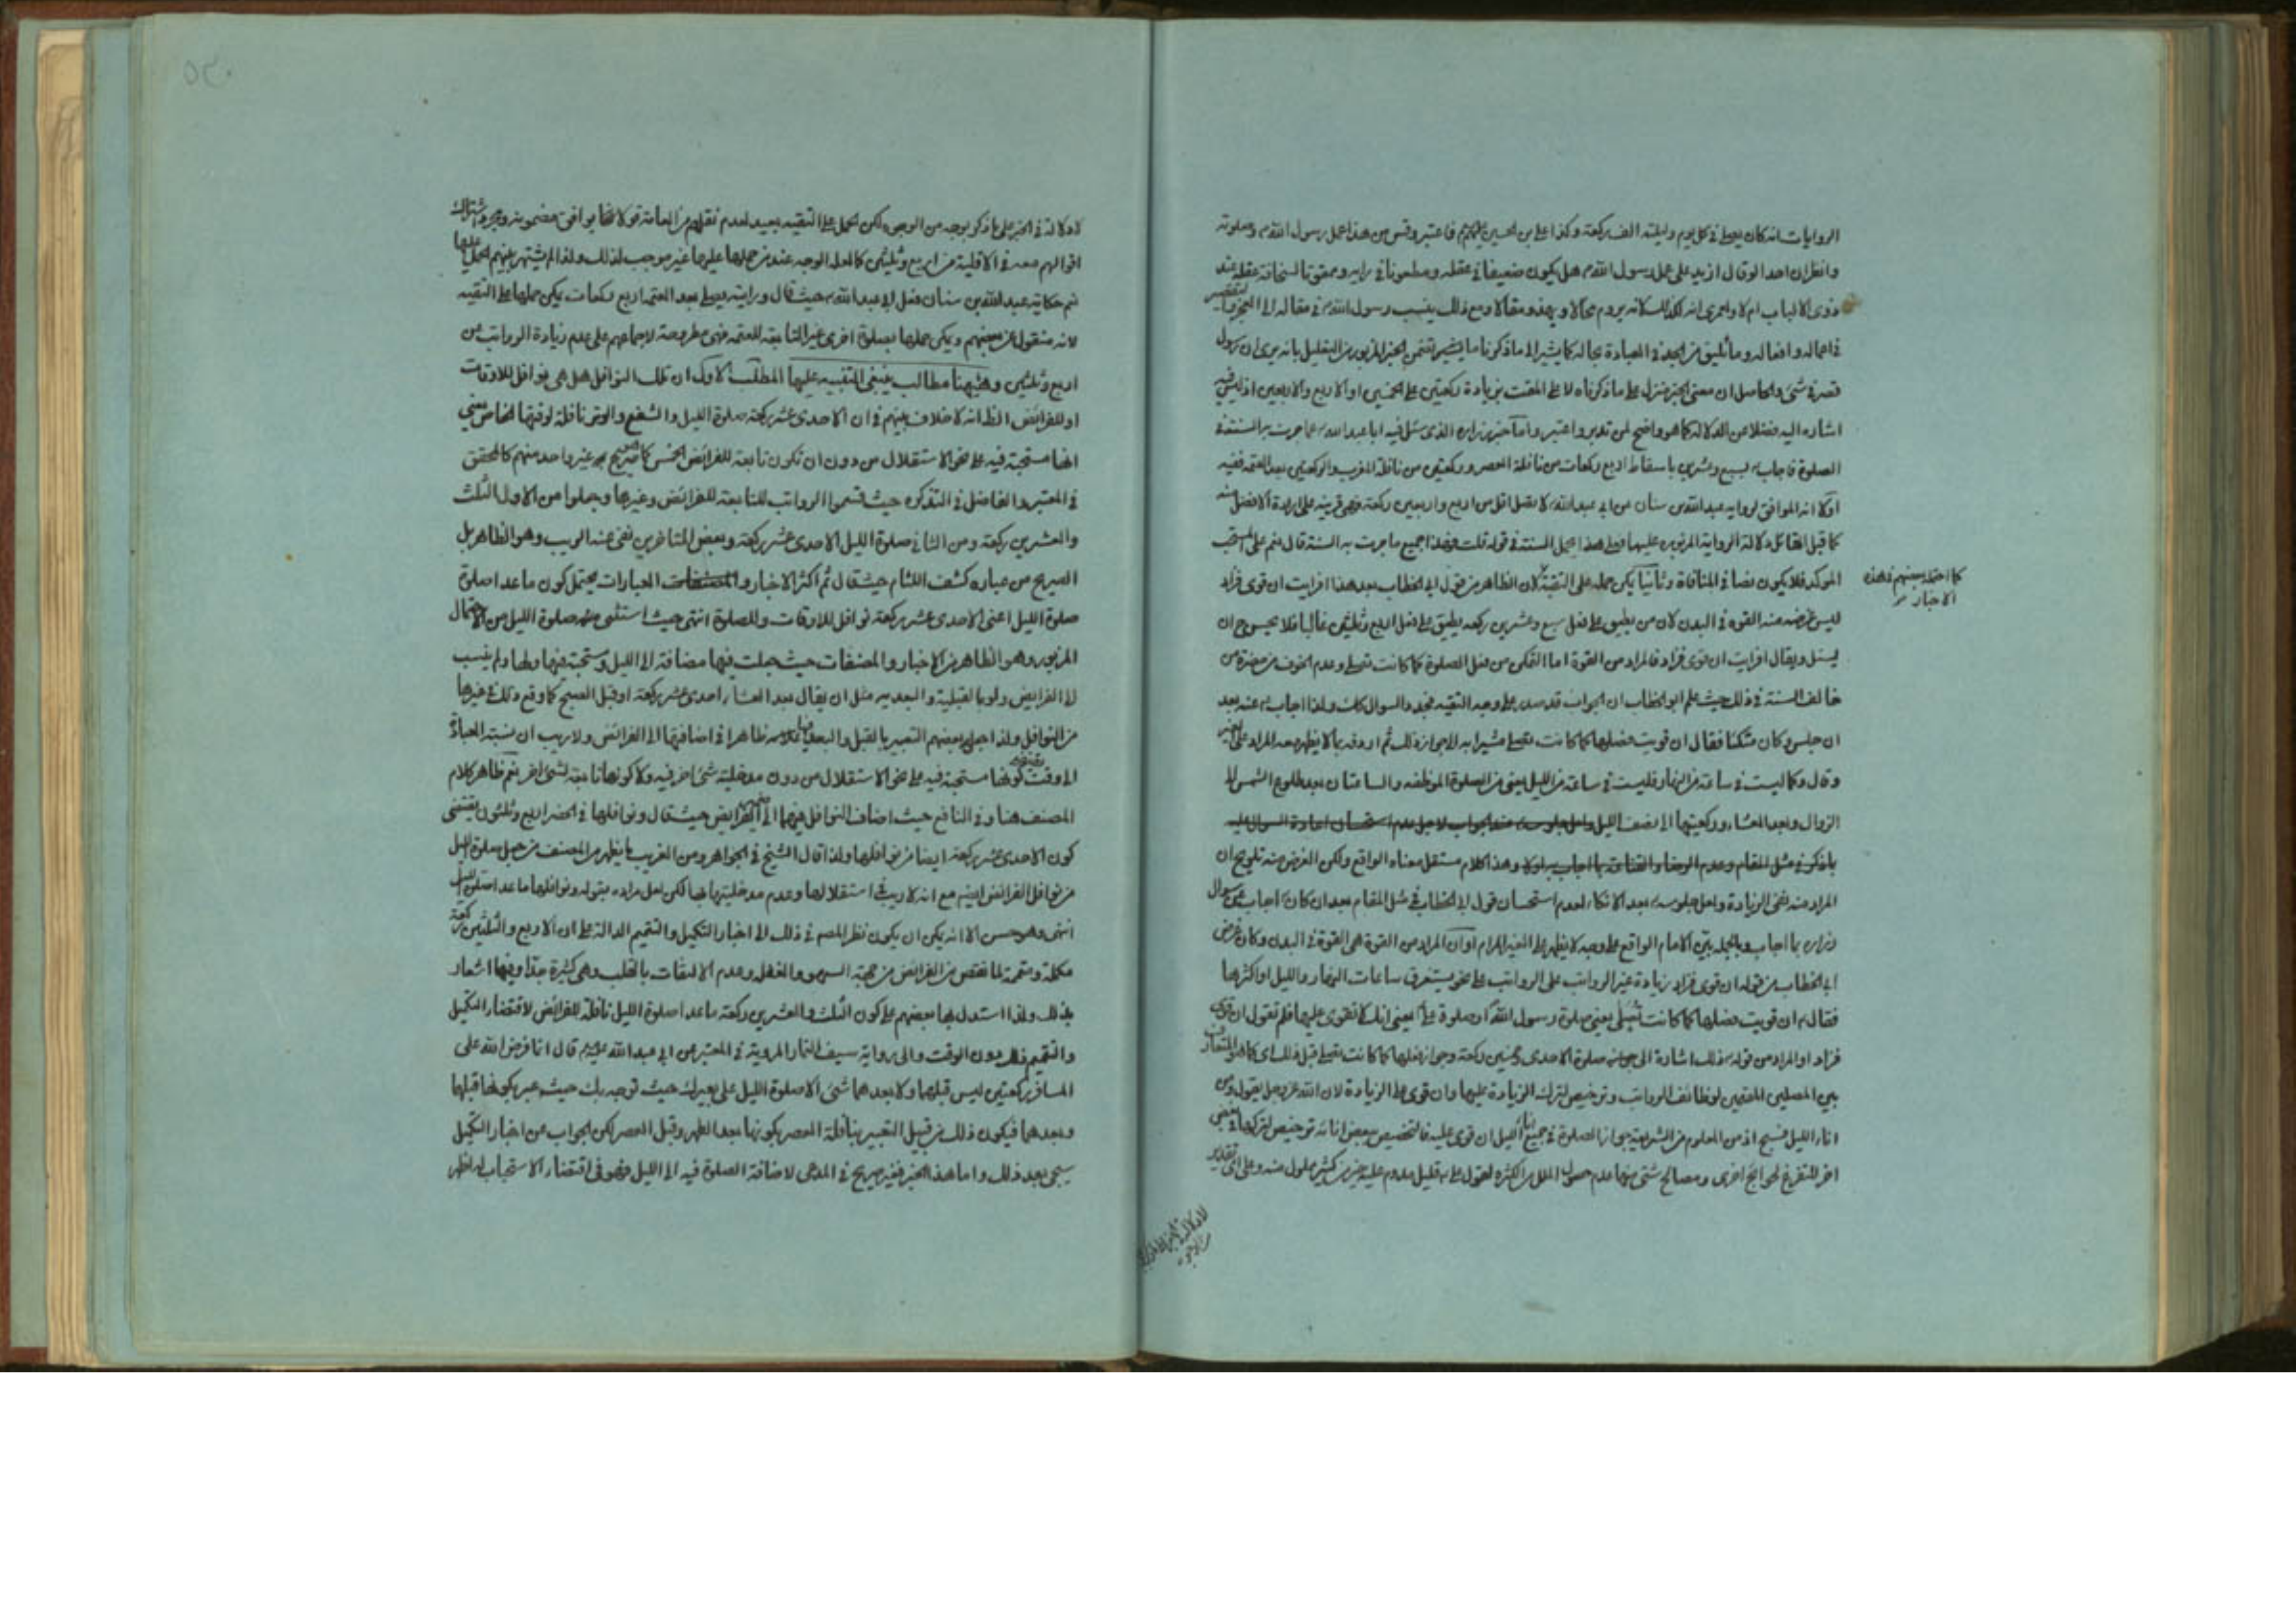 الروايات انه كان يصلي في كل يوم وليلته الف ركعة وكذا علي بن الحسين عليهم فاعتبر وقس من هذا عمل رسول الله ص وصلوته
وانظر ان احدا لو قال ازيد على عمل رسول الله ص هل يكون ضعيفا في عقله ومطعونا في رايه وممقوتا لسخافة عقله عند
ذوي الالباب ام لا ولعمري انه لكذلك لانه يروم محالا ويهذو مقالا ومع ذلك ينسب رسول الله ص في مقاله الى العجز والتقصير
في اعماله وافعاله وما يليق من الجد في العبادة بحاله كما يشير الى ما ذكرنا ما يتضمن الخبر المزبور من التعليل بانه يرى ان رسول
قصر في شيء والحاصل ان معنى الخبر منزل على ما ذكرناه لا على المقت بزيادة ركعتين على الخمسين او الاربع والاربعين اذ ليس فيه
اشاره اليه فضلا عن الدلالة كما هو واضح لمن تدبر واعتبر واما خبر زراره الذي سئل فيه ابا عبد الله ع عما جرت به السنة في
الصلوة فاجاب ع بسبع وعشرين باسقاط اربع ركعات من نافلة العصر وركعتين من نافلة المغرب والركعتين بعد العتمه ففيه
اولا انه الموافق لرواية عبد الله بن سنان عن ابي عبد الله ع لا تصل اقل من اربع واربعين ركعة وهي قرينة على ارادة الافضل منه
كما قبل القائل دلالة الرواية المزبوره عليها فعلى هذا يحمل السنة في قوله قلت فهذا جميع ما جرت به السنة قال نعم على المستحب
الموكد فلا يكون نصا في المنافاة وثانيا يمكن حمله على التقية لان الظاهر من قول ابي الخطاب بعد هذا افرايت ان قوي فزاد
كما احتمله بعضهم في هذه
الاخبار
ليس غرضه منه القوه في البدن لان من يطيق على فعل سبع وعشرين ركعه يطيق على فعل اربع وثلثين غالبا فلا يحسن ح ان
يسئل ويقال افرايت ان قوي فزاد فالمراد من القوة اما التمكن من فعل الصلوة كما كانت تصلى وعدم الخوف من مضرة من
خالف السنة في ذلك حيث علم ابو الخطاب ان الجواب قد صدر على وجه التقيه فجدد السوال كك ولذا اجاب ع عنه بعد
ان جلس وكان متكئا فقال ان قويت فصلها كما كانت تصلى مشيرا به الى جواز ذلك ثم اردفه بما لا يظهر معه المراد على الغير
وقال وكما ليست في ساعة من النهار فليست في ساعة من الليل يعني من الصلوة الموظفه والساعتان بعد طلوع الشمس الى
الزوال وبعد العشاء وركعتيها الى نصف الليل
وهذا كلام مستقل معناه الواقع ولكن الغرض منه تلويح ان
المراد منه نفي الزيادة ولعل جلوسه ع بعد الاتكاء لعدم استحسان قول ابي الخطاب في مثل المقام بعد ان كان ع اجاب عن سوال
زراره بما اجاب وبالجمله بين الامام الواقع على وجه لا يظهر على الغير المرام او ان المراد من القوة هي القوة في البدن وكان غرض
ابي الخطاب من قوله ان قوي فزاد زيادة غير الرواتب على الرواتب على نحو يستغرق ساعات النهار والليل او اكثرها
فقال ع ان قويت فصلها كما كانت تصلى يعني صلوة رسول الله ص او صلوة علي ع يعني انك لا تقوى عليها فلم تقول ان قوي
فزاد او المراد من قوله ع ذلك اشارة الى جواز صلوة الاحدى وخمسين ركعة وجواز فعلها كما كانت تصلى قبل ذلك اي كما هو المتعارف
بين المصلين المقيمين لوظائف الرواتب وترخيص لترك الزيادة عليها وان قوي على الزيادة لان الله عز وجل يقول ومن
اناء الليل فسبح اذ من المعلوم من الشريعة جواز الصلوة في جميع اناء الليل ان قوي عليه فالتخصيص ببعض انائه ترخيص لتركها في بعض
اخر للتفرغ لحوائج اخرى ومصالح شتى منها عدم حصول الملل من الكثره لقول علي ع قليل مدوم عليه خير من كثير مملول منه وعلى اي تقدير
لا دلالة في الخبر على ما ذكر بوجه
من الوجوه
لا دلالة في الخبر على ما ذكر بوجه من الوجوه لكن الحمل على التقيه بعيد لعدم نقلهم من العامة قولا لهم يوافق مضمونه ومجرد اشتراك
اقوالهم معه في الاقلية من اربع وثلثين كما لعله الوجه عند من حملها عليها غير موجب لذلك ولذا لم يشتهر بينهم الحمل عليها
نعم حكاية عبد الله بن سنان فعل ابي عبد الله ع حيث قال ورايته يصلي بعد العتمه اربع ركعات يمكن حملها على التقيه
لانه منقول عن بعضهم ويمكن حملها بصلوة اخرى غير التابعه للعتمه فهي مطروحة لاجماعهم على عدم زيادة الرواتب عن
اربع وثلثين وههنا مطالب ينبغي التنبيه عليها المطلب الاول ان تلك النوافل هل هي نوافل للاوقات
او للفرائض الظ انه لا خلاف بينهم في ان الاحدى عشر ركعة صلوة الليل والشفع والوتر نافلة لوقتها الخاص يعني
انها مستحبة فيه على نحو الاستقلال من دون ان تكون تابعة للفرائض الخمس كما صرح به غير واحد منهم كالمحقق
في المعتبر والفاضل في التذكره حيث قسموا الرواتب للتابعه للفرائض وغيرها وجعلوا من الاول الثلث
والعشرين ركعة ومن الثاني صلوة الليل الاحدى عشر ركعة وبعض المتاخرين نفى عنه الريب وهو الظاهر بل
الصريح من عباره كشف اللثام حيث قال ثم اكثر الاخبار والعبارات يحتمل كون ما عدا صلوة
صلوة الليل اعني الاحدى عشر ركعة نوافل للاوقات وللصلوة انتهى حيث استثنى منه صلوة الليل من الاحتمال
المزبور وهو الظاهر من الاخبار والمصنفات حيث جعلت فيها مضافة الى الليل ومستحبة فيها ولها ولم ينسب
الى الفرايض ولو بالقبلية والبعديه مثل ان يقال بعد العشاء احدى عشر ركعة او قبل الصبح كما وقع ذلك في غيرها
من النوافل ولذا جعل بعضهم التعبير بالقبل والبعد ظاهرا في اضافتها الى الفرائض ولا ريب ان نسبة العبادة
الى وقت يقتضي كونها مستحبة فيه على نحو الاستقلال من دون مدخلية شيء اخر فيه ولا كونها تابعة لشيء اخر نعم ظاهر كلام
المصنف هنا وفي النافع حيث اضاف النوافل فيهما الى الفرايض حيث قال ونوافلها في الحضر اربع وثلثون يقتضي
كون الاحدى عشر ركعة ايضا من نوافلها ولذا قال الشيخ في الجواهر ومن الغريب ما يظهر من المصنف من جعل صلوة الليل
من نوافل الفرائض ايضا مع انه لا ريب في استقلالها وعدم مدخليتها بها لكن لعل مراده بقوله ونوافلها ما عدا صلوة الليل
انتهى وهو حسن الا انه يمكن ان يكون نظر المصنف في ذلك الى اخبار التكميل والتتميم الدالة على ان الاربع والثلثين ركعة
مكملة ومتممة لما نقص من الفرائض من جهة السهو والغفله وعدم الالتفات بالقلب وهي كثيرة جدا وفيها اشعار
بذلك ولذا استدل بها بعضهم على كون الثلث والعشرين ركعة ما عدا صلوة الليل نافلة للفرائض لاقتضاء التكميل
والتتميم ذلك دون الوقت والى رواية سيف التمار المروية في المعتبر عن ابي عبد الله ع قال انما فرض الله على
المسافر ركعتين ليس قبلهما ولا بعدهما شيء الا صلوة الليل على بعيرك حيث توجه بك حيث عبر بكونها قبلها
وبعدها فيكون ذلك من قبيل التعبير بنافلة العصر بكونها بعد الظهر وقبل العصر لكن الجواب عن اخبار التكميل
سيجيء بعد ذلك واما هذا الخبر فغير صريح في المدعى لاضافة الصلوة فيه الى الليل فهو في اقتضاء الاستحباب له اظهر